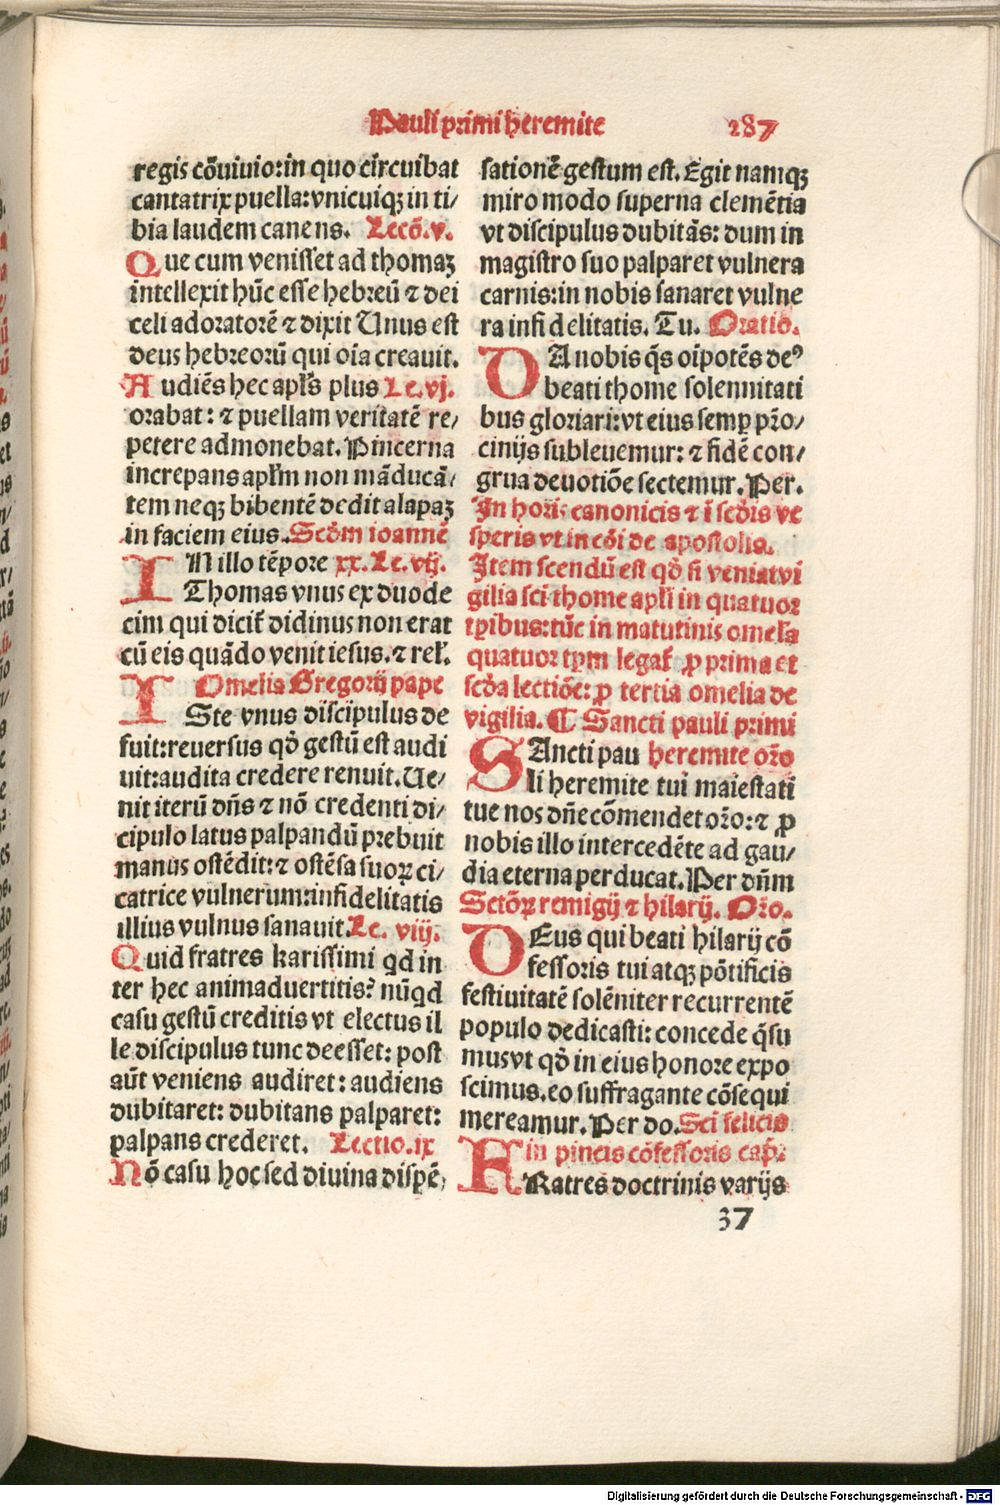 Pauli primi heremite
287
regis cōuiuio: in quo circuibat
cantatrix puella: vnicuiqꝫ in ti/
bia laudem canens. Lecō. v.
Que cum venisset ad thomaꝫ
intellexit hūc esse hebreū ⁊ dei
celi adoratorē ⁊ dixit Unus est
deus hebreorū qui oīa creauit.
Audiēs hec apłs plus Le. vj.
orabat: ⁊ puellam veritatē re/
petere admonebat. Pincerna
increpans apłm non māducā/
tem neqꝫ bibentē dedit alapaꝫ
in faciem eius. Scd̄m ioannē
IN illo tēpore xx. Le. vij.
Thomas vnus ex duode
cim qui dicit̄ didinus non erat
cū eis quādo venit iesus. ⁊ rel̄.
Omelia Gregorij pape
ISte vnus discipulus de
fuit: reuersus qd̄ gestū est audi
uit: audita credere renuit. Ue/
nit iterū dn̄s ⁊ nō credenti di/
cipulo latus palpandū prebuit
manus ostēdit: ⁊ ostēsa suoꝝ ci/
catrice vulnerum: infidelitatis
illius vulnus sanauit. Le. viij.
Quid fratres karissimi qd in
ter hec animaduertitis? nūqd
casu gestū creditis vt electus il
le discipulus tunc deesset: post
aūt veniens audiret: audiens
dubitaret: dubitans palparet:
palpans crederet. Lectio. ix
Nō casu hoc sed diuina dispē/
sationē gestum est. Egit namqꝫ
miro modo superna clemētia
vt discipulus dubitās: dum in
magistro suo palparet vulnera
carnis: in nobis sanaret vulne
ra infidelitatis. Tu. Oratio.
DA nobis q̄s oīpotēs deꝰ
beati thome solennitati
bus gloriari: vt eius semꝑ pr̄o/
cinijs subleuemur: ⁊ fidē con/
grua deuotiōe sectemur. Per.
In horis canonicis ⁊ ī scd̄is ve
speris vt in cōi de apostolis.
Item sciendū est qd̄ si veniat vi
gilia sci thome apłi in quatuor
tꝑibus: tūc in matutinis omel̄ia
quatuor tꝑm legat̄ ꝓ prima et
scd̄a lectiōe: ꝓ tertia omelia de
vigilia. ¶ Sancti pauli primi
SAncti pau heremite or̄o
li heremite tui maiestati
tue nos dn̄e cōmendet or̄o: ⁊ ꝓ
nobis illo intercedēte ad gau/
dia eterna perducat. Per dn̄m
Sctōꝝ remigij ⁊ hilarij. Or̄o.
DEus qui beati hilarij cō
fessoris tui atqꝫ pōtificis
festiuitatē solēniter recurrentē
populo dedicasti: concede q̄su
mus vt qd̄ in eius honore expo
scimus. eo suffragante cōsequi
mereamur. Per do. Sci felicis
in pincis cōfessoris cap̄.
FRatres doctrinis varijs
37
Digitalisierung gefördert durch die Deutsche Forschungsgemeinschaft - DFG